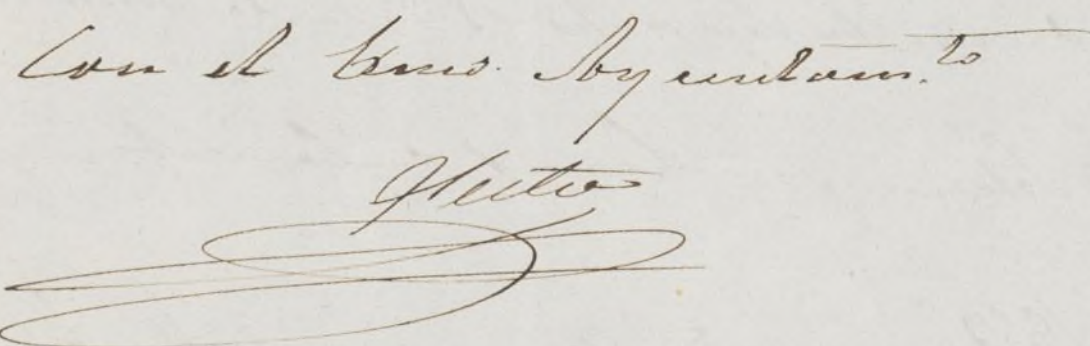 Con el Exmo. Ayuntam.to